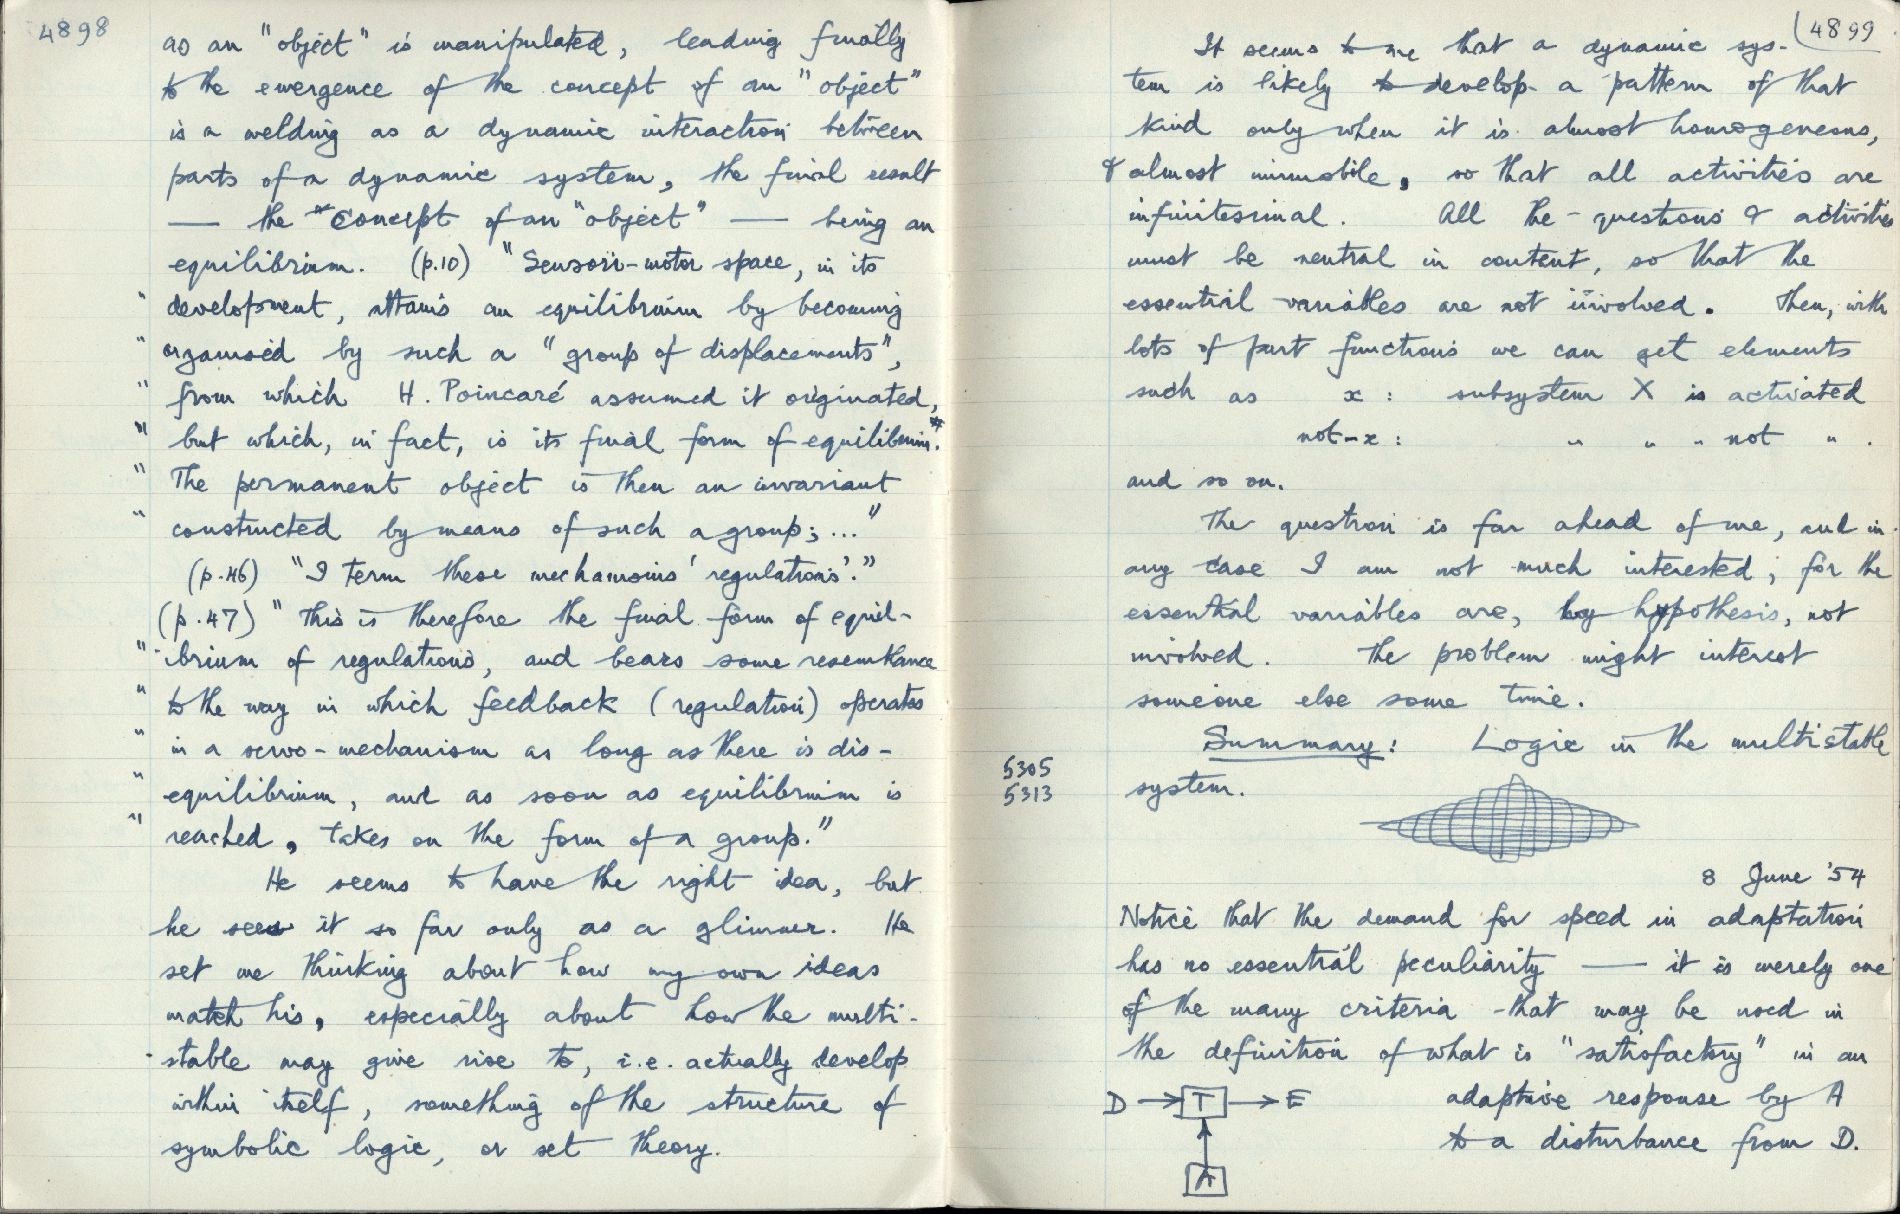 4898
as an "object" is manipulated, leading finally
to the emergence of the concept of an "object"
is a welding as a dynamic interaction between
parts of a dynamic system, the final result
— the concept of an "object" — being an
equilibrium. (p.10) "Sensori-motor space, in its
" development, attains an equilibrium by becoming
" organised by such a "group of displacements",
" from which H. Poincaré assumed it originated,
" but which, in fact, is its final form of equilibrium.*
" The permanent object is then an invariant
" constructed by means of such a group; ..."
(p.46) "I term these mechanisms 'regulations'."
(p.47) "This is therefore the final form of equil-
" -ibrium of regulations, and bears some resemblance
" to the way in which feedback (regulation) operates
" in a servo-mechanism as long as there is dis-
" equilibrium, and as soon as equilibrium is
" reached, takes on the form of a group."
He seems to have the right idea, but
he sees it so far only as a glimmer. He
set me thinking about how my own ideas
match his, especially about how the multi-
-stable may give rise to, i.e. actually develop
within itself, something of the structure of
symbolic logic, or set theory.
4899
It seems to me that a dynamic sys-
tem is likely to develop a pattern of that
kind only when it is almost homogeneous,
& almost immobile, so that all activities are
infinitesimal. All the questions & activities
must be neutral in content, so that the
essential variables are not involved. Then, with
lots of part functions we can get elements
such as x : subsystem X is activated
not-x : " " " not " .
and so on.
The question is far ahead of me, and in
any case I am not much interested; for the
essential variables are, by hypothesis, not
involved. The problem might interest
someone else some time.
Summary: Logic in the multistable
system.
5305
5313
8 June '54
Notice that the demand for speed in adaptation
has no essential peculiarity — it is merely one
of the many criteria that may be used in
the definition of what is "satisfactory" in an
adaptive response by A
to a disturbance from D.
D → T → E
A